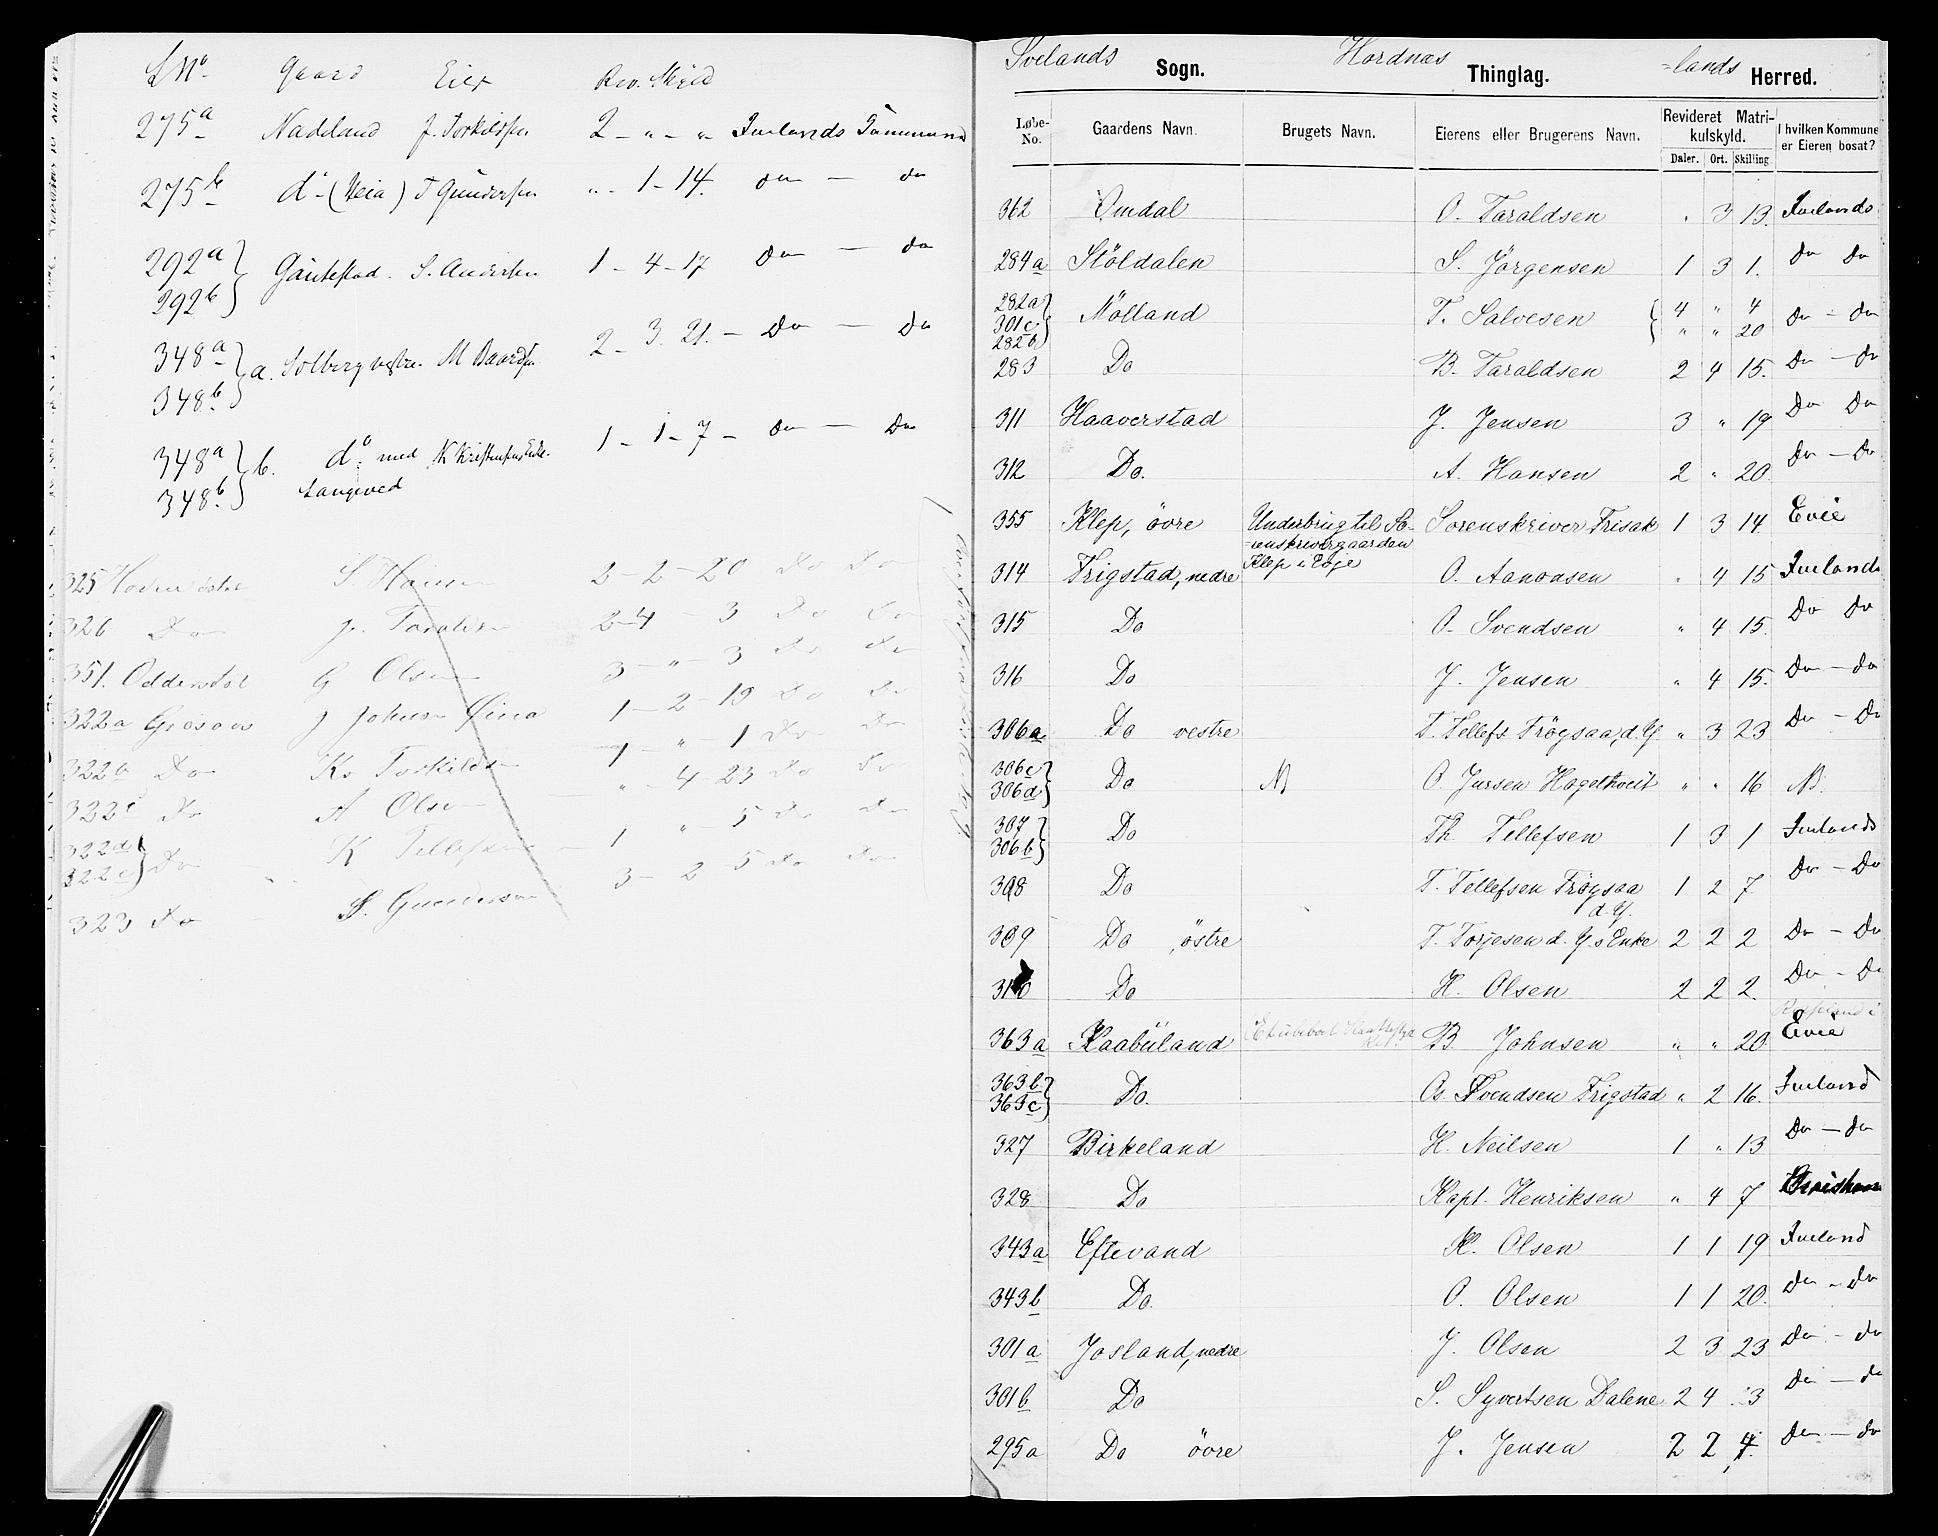 L No. Gaard Eier Rev. Skyld
275a Nadeland J. Torkildsen 2 - " - " Ivelands
275b do - (Heia) T Gundersen " - 1 - 14. do — do
292a Gautestad. S. Andersen 1 - 4 - 17 do — do
292b
348a a. Solberg vestre. M Baardsen 2 - 3. 21. - Do — Do
348b.
348a b. do. med K Kristensens Enke. 1 - 1 - 7 - do — Do
348b. Langeved
325 S. Hansen 2 - 2 - 20 Do Do
326 Do J. Taraldsen 2 - 4 - 3 Do Do
351. Odderstøl G Olsen 3 - " - 3 Do Do
322a Grosaas J Johnsen 1 - 2 - 19 Do Do
322b Do Kr Torkildsen 1 - " - 1 Do Do
322c Do A Olsen " - 4 - 23 Do Do
322d Do K Tellefsen 1 " - 5 Do Do
322e
323 Do S. Gundersen 3 - 2 - 5 Do Do
Ivelands Sogn. Hordnæs Thinglag. =lands Herred.
Løbe-No. Gaardens Navn. Brugets Navn. Eierens eller Brugerens Navn. Revideret Matrikulskyld. I hvilken Kommune er Eieren bosat?
Daler. Ort. Skilling
362 Omdal O. Taraldsen " 3 13. Ivelands
284a Stöldalen S. Jörgensen 1 3 1. Do Do
282a Nölland T. Salvesen 4 " 4 Do - Do
301c " " 20
282b
283 Do B. Taraldsen 2 4 15. Do - Do
311 Haaverstad J. Jensen 3 " 19 Do Do
312 Do. A. Hansen 2 " 20. Do - Do
355 Klep, övre Underbrug til So- Sorenskriver Frisak 1 3 14. Evie
=renskrivergaarden
Klep i Evje
314 Frigstad, nedre O. Aanonsen " 4 15 Ivelands
315 Do O. Svendsen " 4 15. Do Do
316 Do J. Jensen " 4 15. Do - Do
306a Do vestre T. Tellefs. Frögsaa, d. Y. " 3 23 Do - Do
306c Do N O. Jursen Hogethveit " " 16 N.
306d
307 Do Th Tellefsen 1 3 1 Ivelands
306b
308 Do T. Tellefsen Frögsaa 1 2 7. Do - Do
d. Y.
309 Do , östre T. Torjesen d. Y.s Enke 2 2 2 Do - Do
310 Do H. Olsen 2 2 2. Do - Do
363a Kaabuland B. Johnsen " " 20. Evie
363b Do. Os. Svendsen Frigstad " 2 16. Iveland
363c
327 Birkeland H. Neilsen 1 " 13 Do - Do
328 Do Kapt. Henriksen " 4 7 Christians
343a Eftevand K. Olsen 1 1 19 Iveland
343b Do. O. Olsen 1 1 20. do - do
301a Josland, nedre J. Olsen 2 3 23 do - do
301b Do S. Syvertsen Dalene 2 4 3 do - do
295a Do övre J. Jensen 2 2 4. do - do